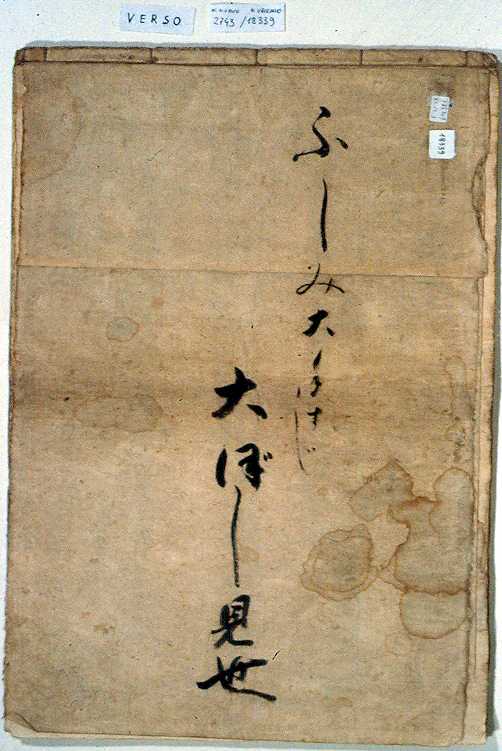 VERSO
N. NUOVO N. VECCHIO
2743 / 18339
18339
ふしみ大
大ぼし見世